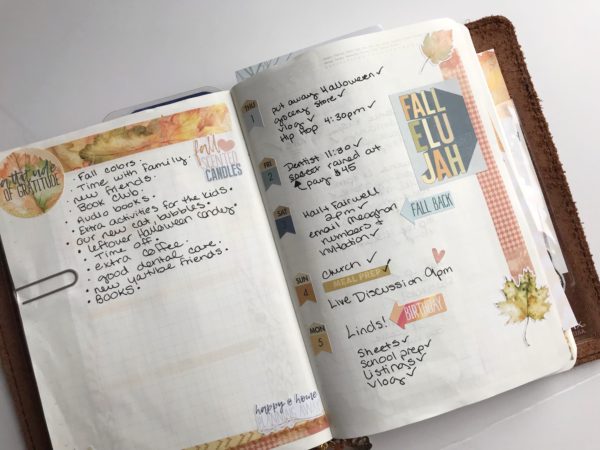 attitude
OF GRATITUDE
. Fall colors.
. Time with family.
. new friends.
. Book club.
. Audio books.
. Extra activities for the kids.
. our new cat, bubbles.
. leftover Halloween candy.
. Time off.
. extra coffee.
. good dental care.
. new youtube friends.
. BOOKS.
fall
SCENTED
CANDLES
happy @ home
THU
1
put away Halloween ✓
grocery store ✓
vlog ✓
Hip Hop 4:30pm ✓
FALL
ELU
JAH
FRI
2
Dentist 11:30 ✓
soccer rained out
pay $45
SAT
Kaily Fairwell
2pm ✓
email Meaghan
numbers +
invitation ✓
FALL BACK
SUN
4
church ✓
MEAL PREP ✓
Live Discussion 9pm
MON
5
Linds!
BIRTHDAY
sheets ✓
school prep ✓
Listings ✓
vlog ✓